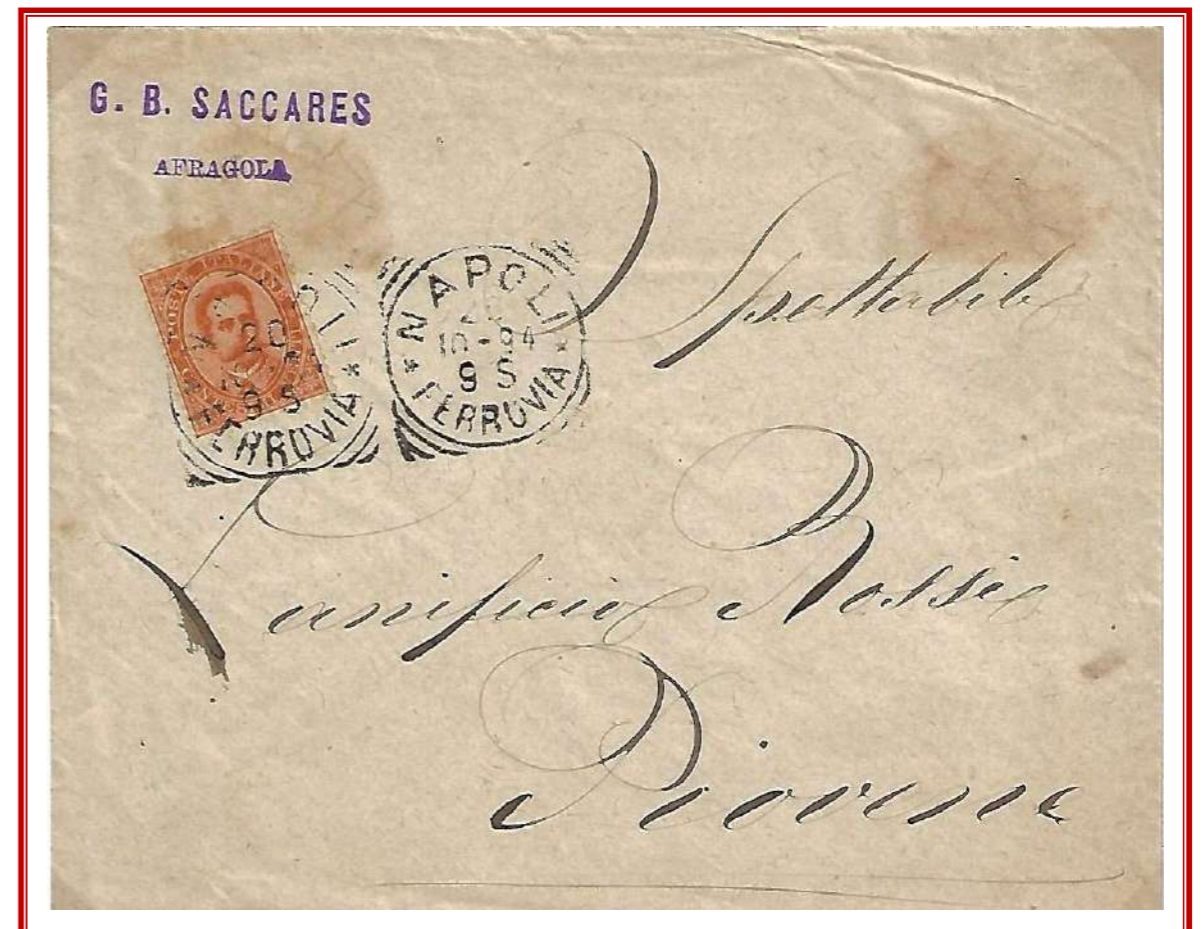 G. B. SACCARES
AFRAGOLA
NAPOLI
20
10-94
9 S
FERROVIA
20
9 S
FERROVIA
Spettabile
Lanificio Rossi
Piovene